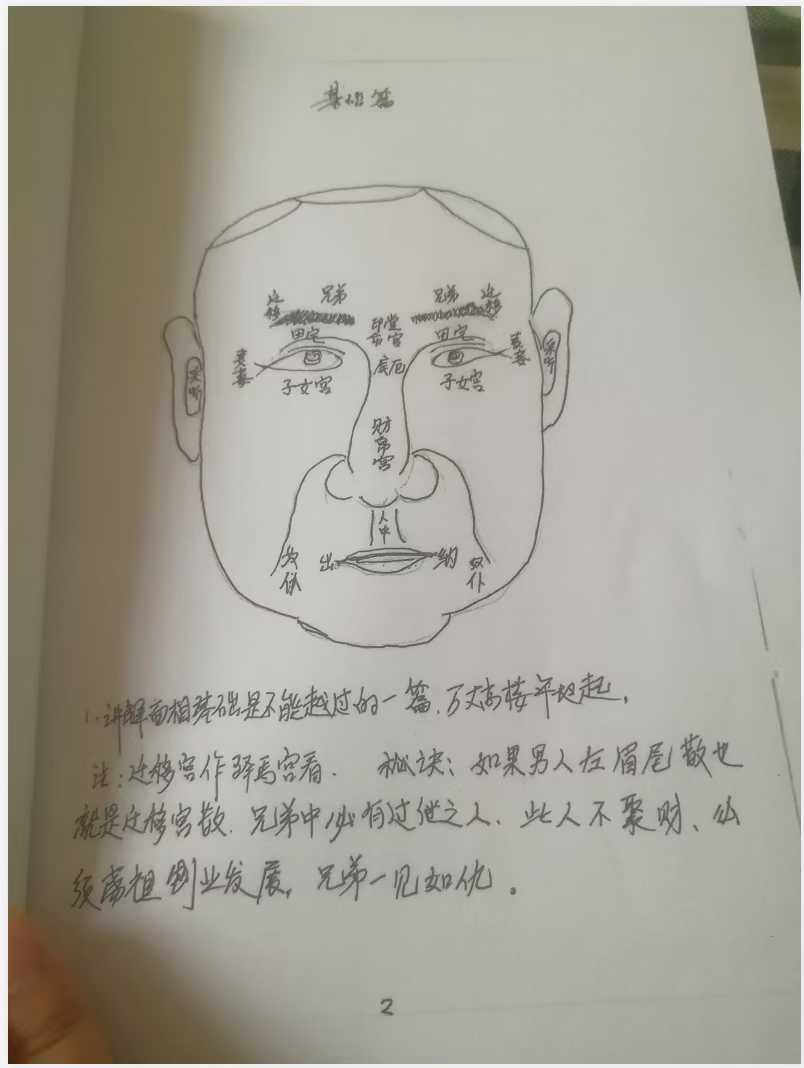 基础篇
迁移 兄弟 兄弟 迁移
印堂
命宫
田宅 田宅
疾厄
妻妾 妻妾
采听 采听
子女宫 子女宫
财帛宫
人中
奴仆 出 纳 奴仆
1.讲解面相基础是不能越过的一篇.万丈高楼平地起.
注:迁移宫作驿马宫看. 秘诀:如果男人左眉尾散也
就是迁移宫散.兄弟中必有过世之人.此人不聚财、必
须离祖创业发展,兄弟一见如仇。
2